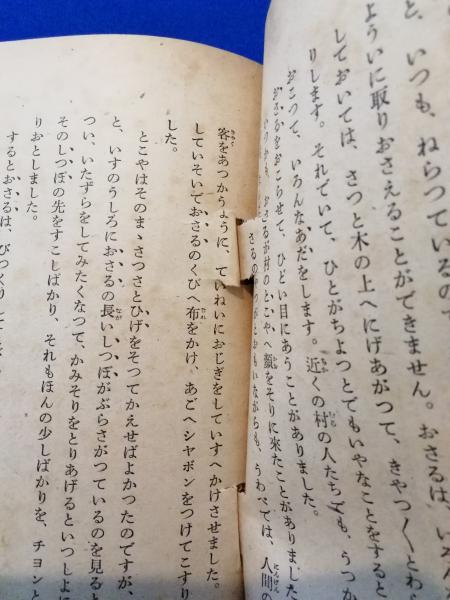 と、いつも、ねらつているので
よういに取りおさえることができません。おさるは、いろん
しておいては、さつと木の上へにげあがつて、きやつ〱とわら
りします。それでいて、ひとがちよつとでもいやなことをすると
おこつて、いろんなあだをします。近くの村の人たちでも、うつか
おさるをおこらせて、ひどい目にあうことがありました。
いつかも、おさるが村のとこやへ顔をそりに来たことがありました
さるのやつがとおもいながらも、うわべでは、人間の
客をあつかうように、ていねいにおじぎをしていすへかけさせました。
していそいでおさるのくびへ布をかけ、あごへシヤボンをつけてこすり
した。
とこやはそのまゝさつさとひげをそつてかえせばよかつたのですが、
と、いすのうしろにおさるの長いしつぽがぶらさがつているのを見ると
つい、いたずらをしてみたくなつて、かみそりをとりあげるといつしよに
そのしつぽの先をすこしばかり、それもほんの少しばかりを、チヨンと
りおとしました。
するとおさるは、びつくりして